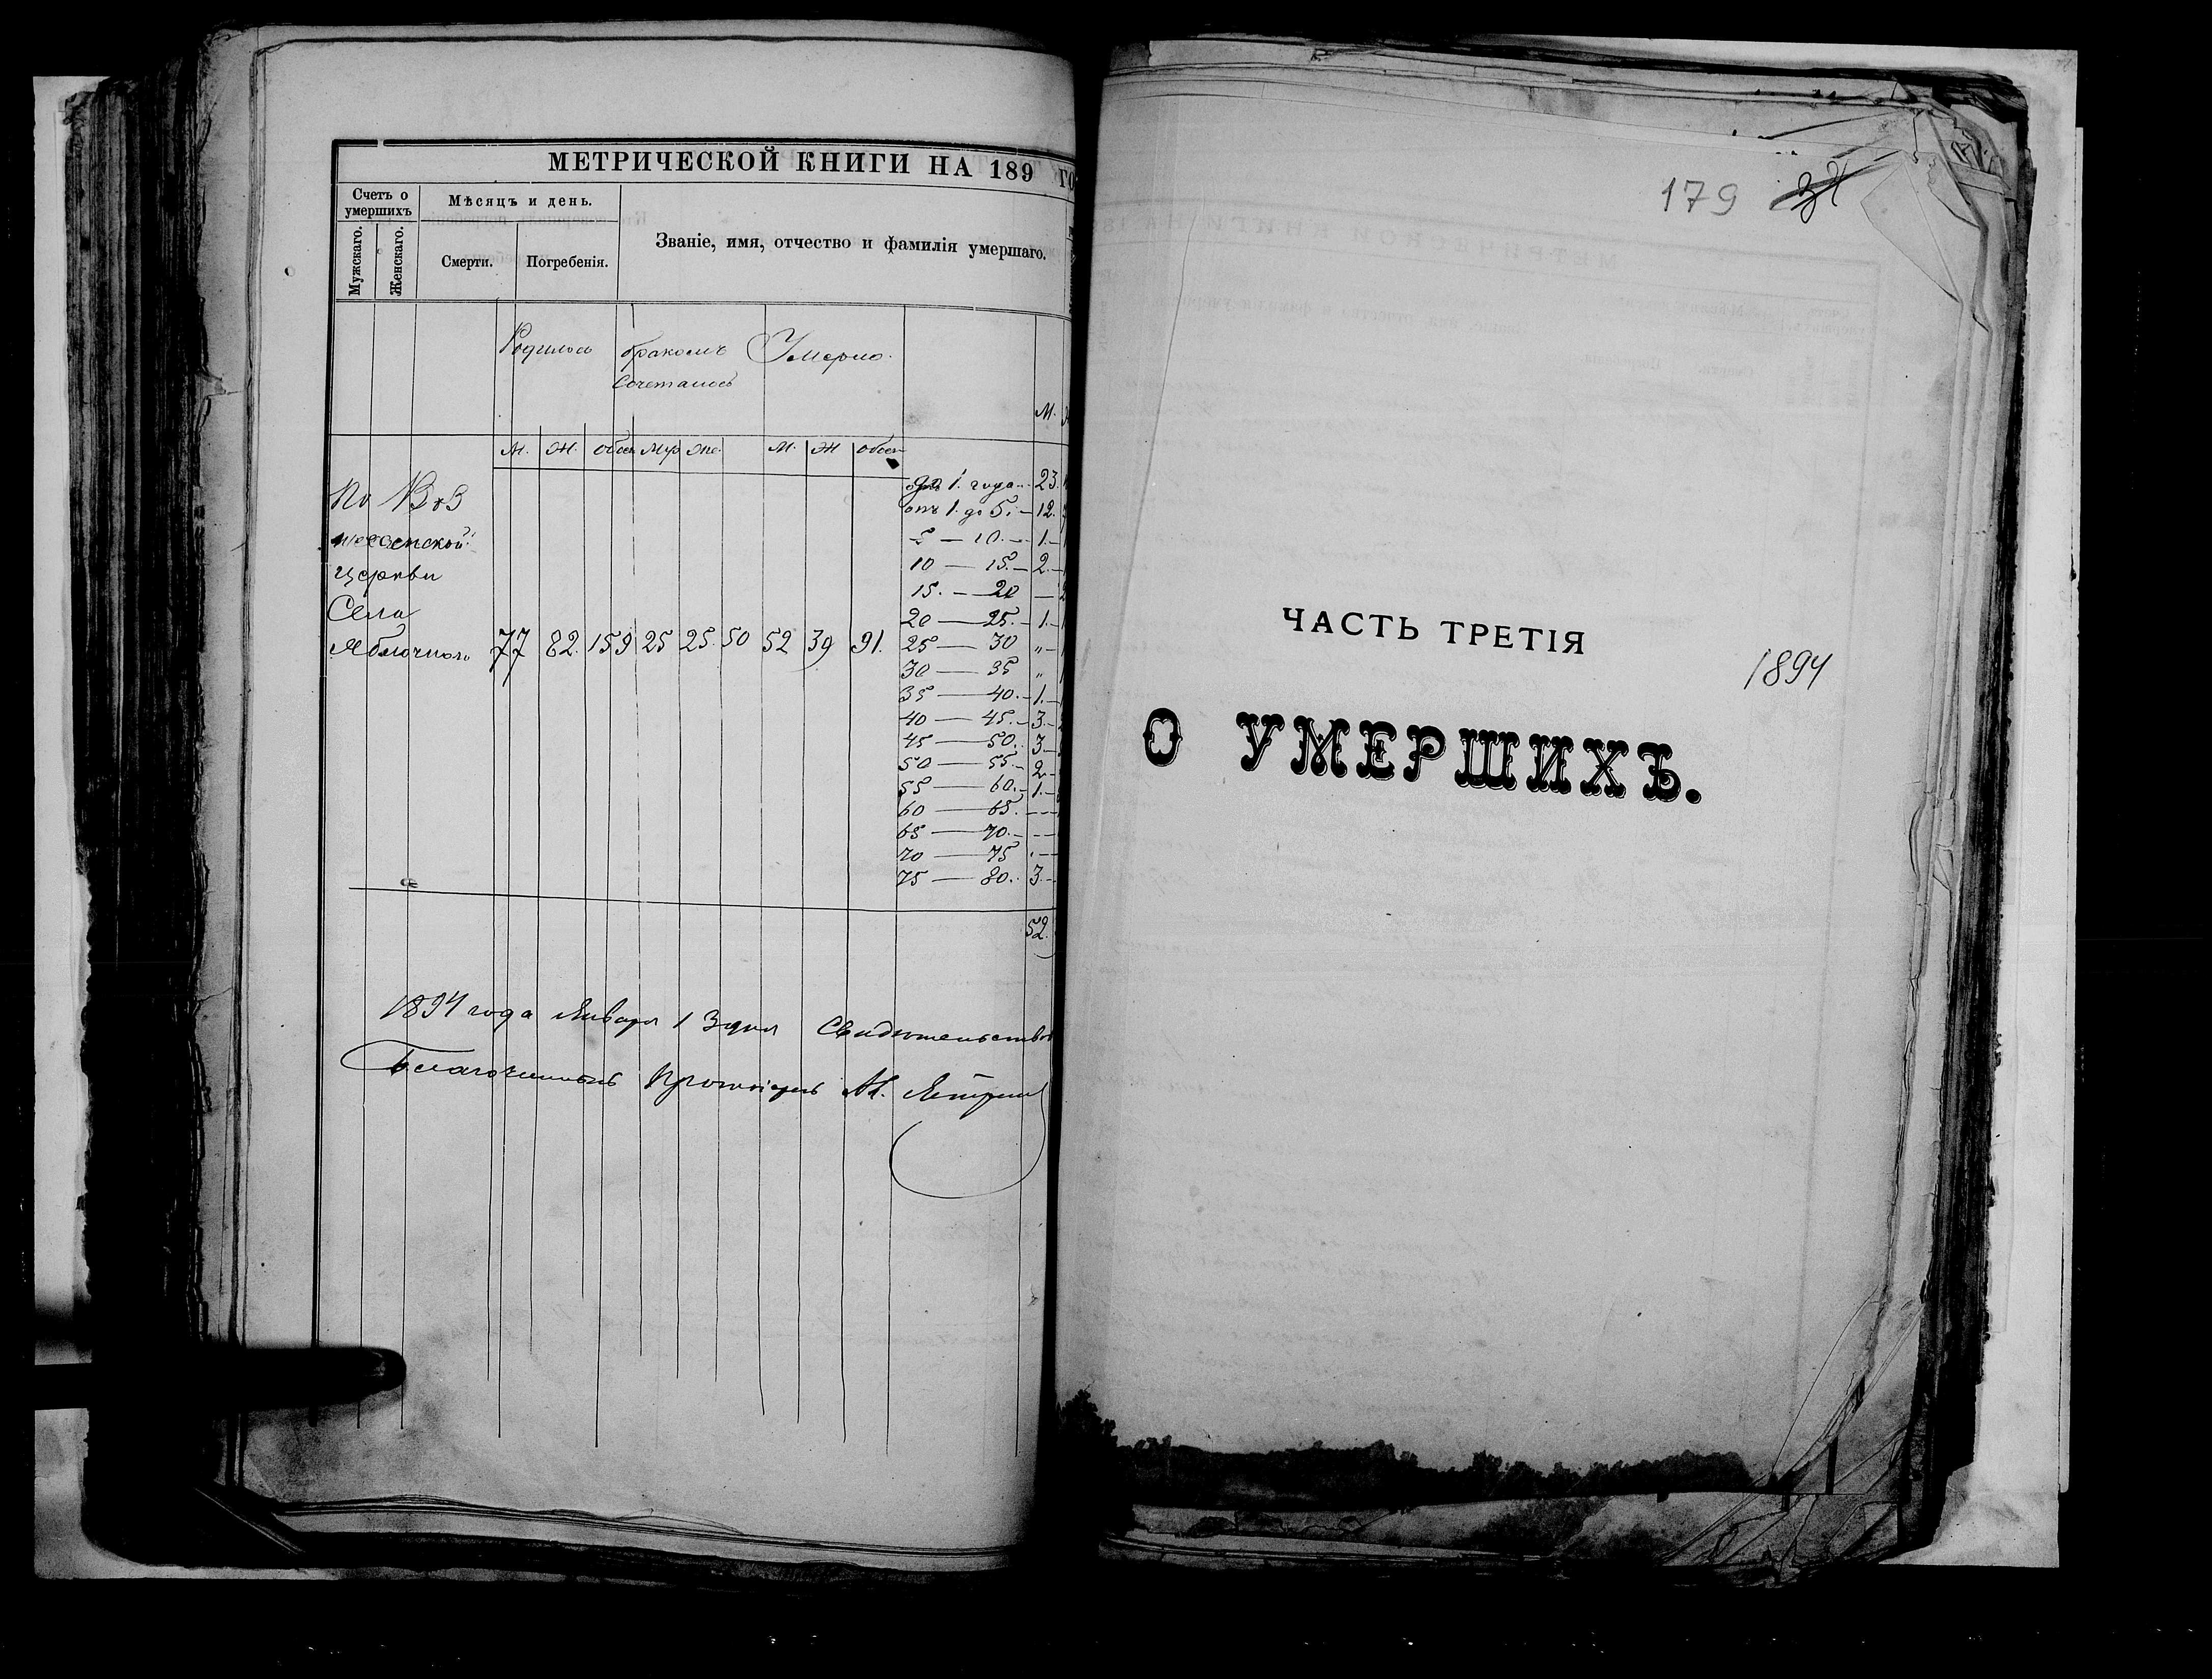 МЕТРИЧЕСКОЙ КНИГИ НА 189 ГО
Счетъ о умершихъ
Мужскаго.
Женскаго.
Мѣсяцъ и день.
Смерти.
Погребенія.
Званіе, имя, отчество и фамилія умершаго.
Родилось
бракомъ
сочеталось
Умерло.
М.
М. Ж. обоего Муж Же. М. Ж обоего
По Воз
несенской
церкви
Села
Яблочнаго 77 82. 159 25 25. 50 52 39 91.
до 1. года 23.
отъ 1. до 5. — 12.
5 — 10. — 1. —
10 — 15. — 2. —
15. — 20 —
20 — 25. — 1. —
25 — 30 „ —
30 — 35 „
35 — 40. — 1. —
40 — 45. — 3. —
45 — 50. 3 —
50 — 55. — 2 —
55 — 60. — 1. —
60 — 65. — — —
65 — 70. — — —
70 — 75 . — —
75 — 80. 3. —
52.
1894 года Января 13 дня Свидѣтельствов
Благочинный Протоіерей
179
ЧАСТЬ ТРЕТІЯ
1894
О УМЕРШИХЪ.